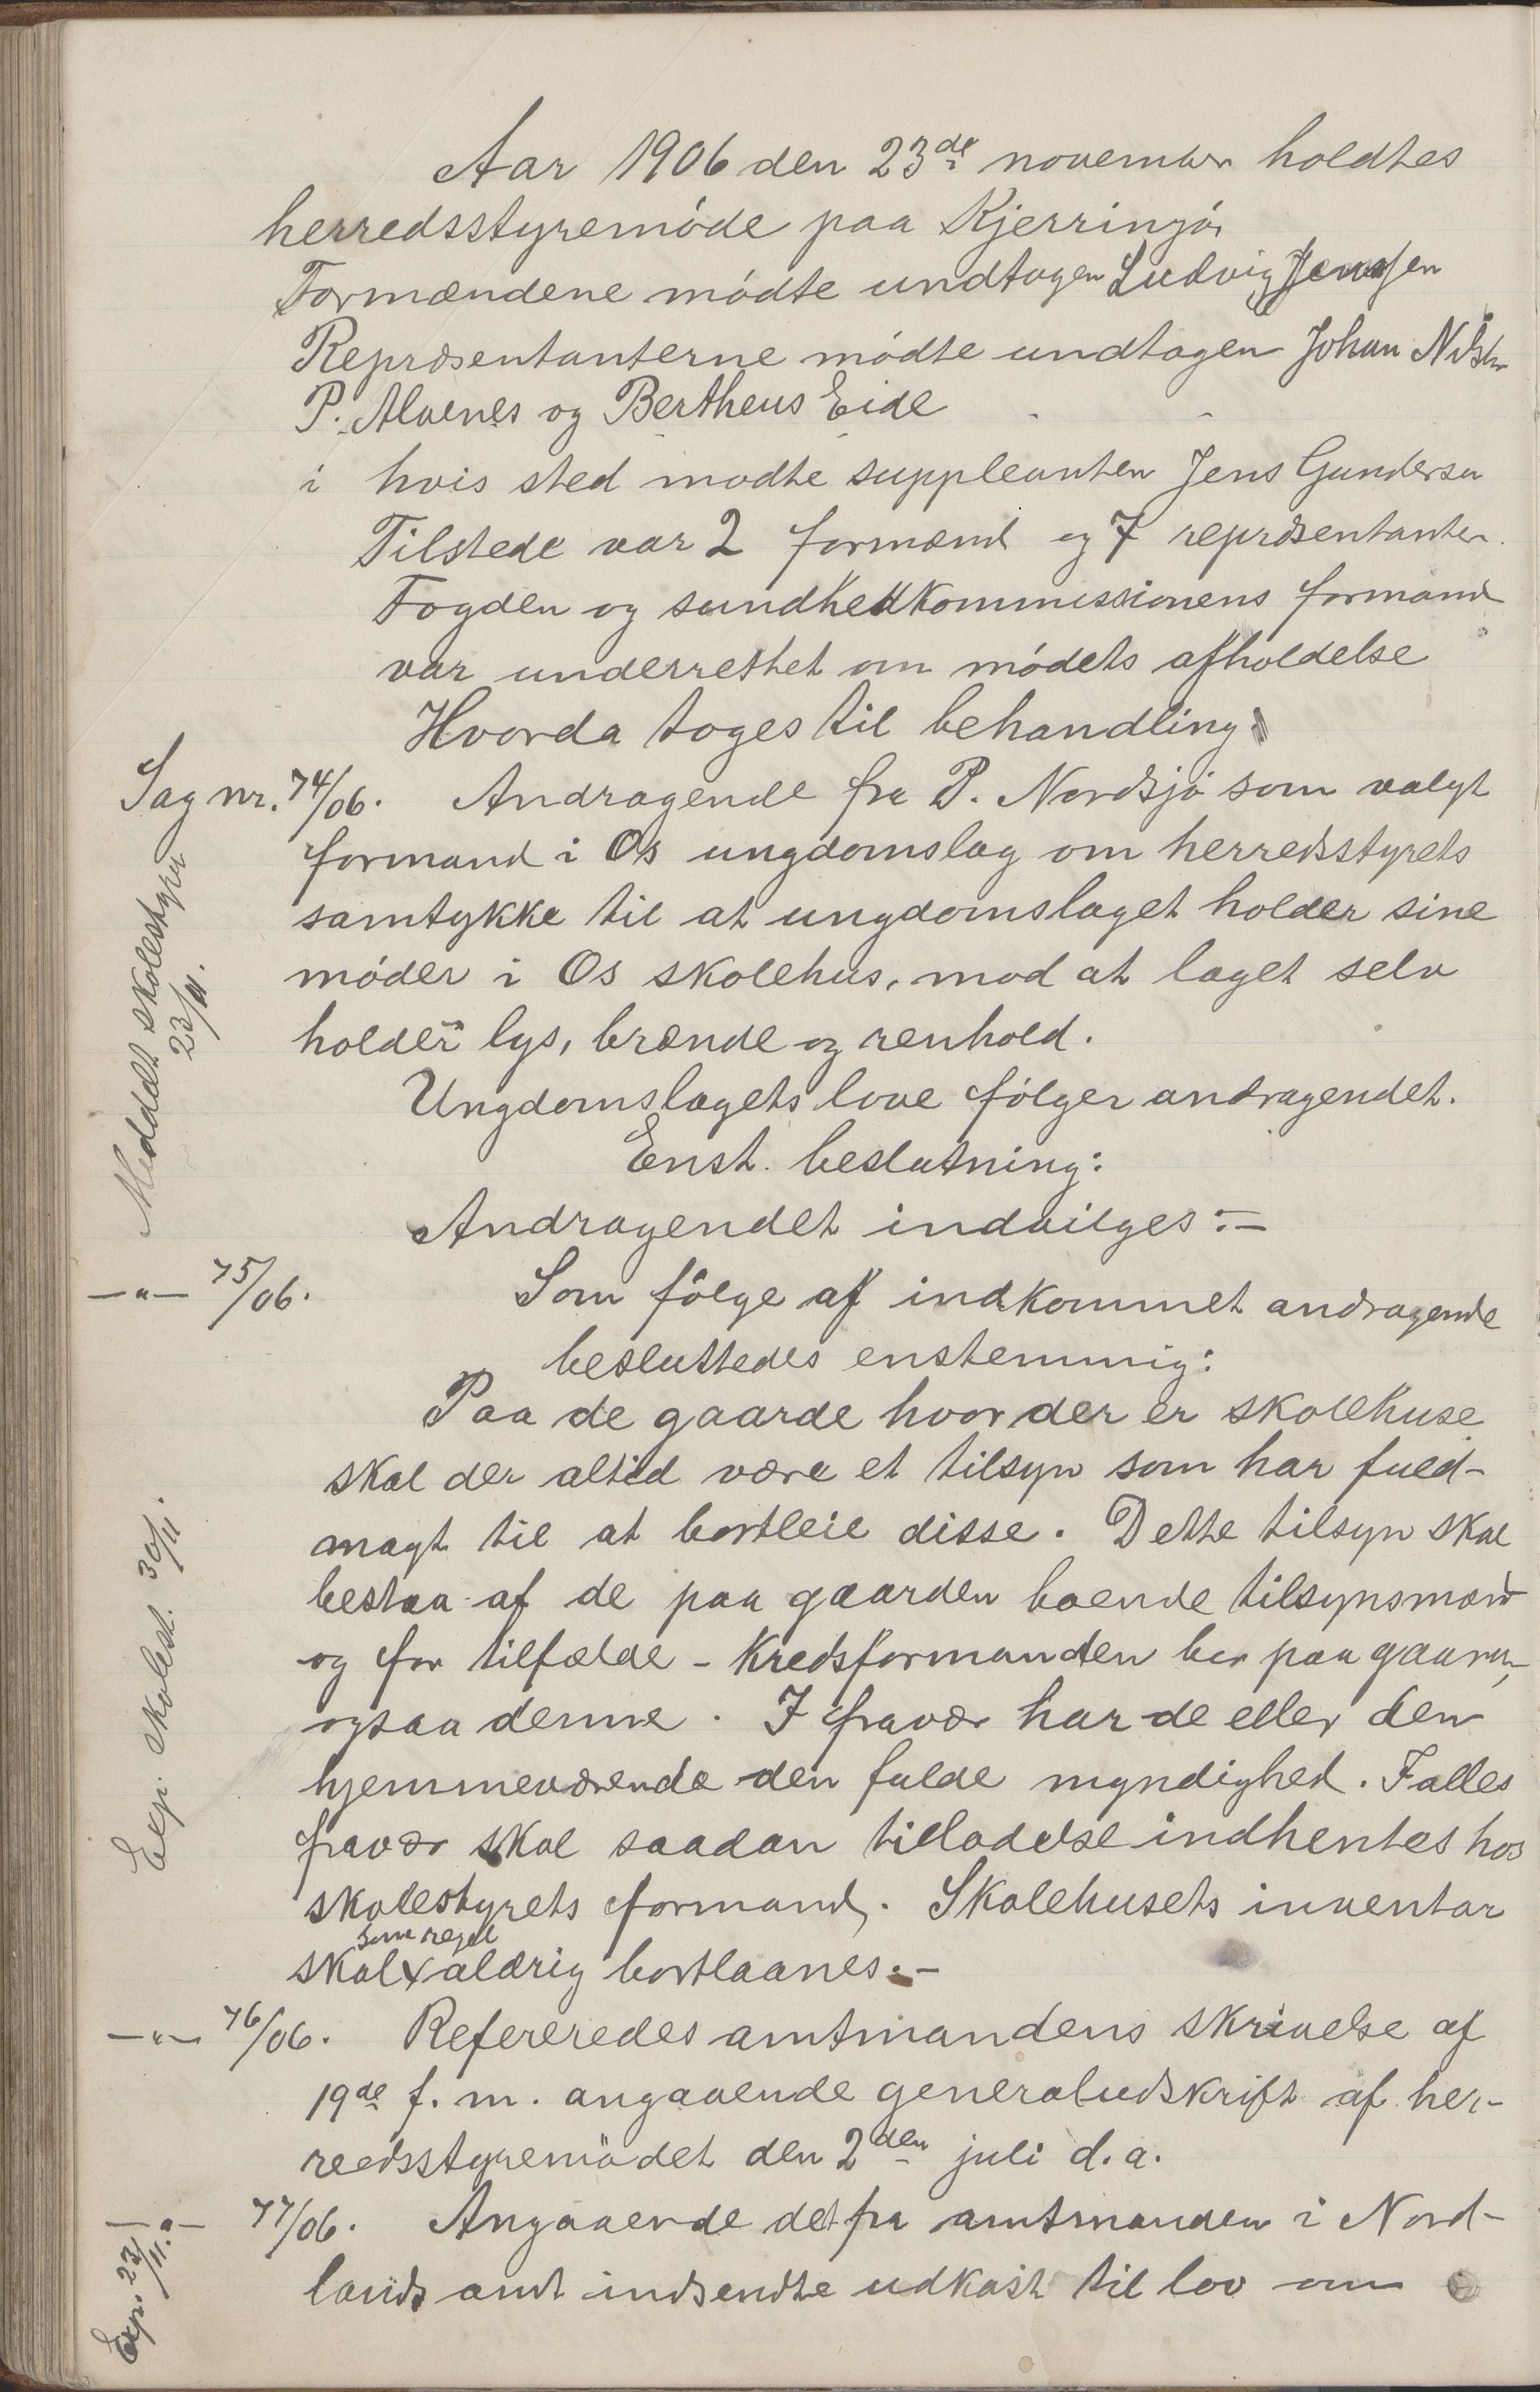 Aar 1906 den 23de november holdtes
herredsstyremöde paa Kjerringö,
Formændene mödte undtagen Ludvig Jensen
Repræsentanterne mödte undtagen Johan Nilsen
P. Alvenes og Bertheus Eide
i hvis sted mødte suppleanten Jens Gundersen
Tilstede var 2 formænd og 7 repræsentanter.
Fogden og sundhedkommissionens formand
var underrettet om mödets afholdelse
Hvorda toges til behandling:
Sag nr. 74/06. Andragende fra P. Nordsjö som valgt
formand i Os ungdomslag om herredsstyrets
samtykke til at ungdomslaget holder sine
möder i Os skolehus, mod at laget selv
holder lys, brænde og renhold.
Meddelt skolestyret
23/11.
Ungdomslagets love fölger andragendet.
Enst. beslutning:
Andragendet indvilges:-
—"— 75/06. Som fölge af indkommet andragende
besluttedes enstemmig:
Paa de gaarde hvor der er skolehuse
skal der altid være et tilsyn som har fuld-
magt til at bortleie disse. Dette tilsyn skal
bestaa af de paa gaarden boende tilsynsmænd
og for tilfælde - kredsformanden bor paa gaarden,
ogsaa denne. I fravær har de eller den
hjemmeværende den fulde myndighed. I alles
fravær skal saadan tilladelse indhentes hos
skolestyrets formand. Skolehusets inventar
som regel
skal x aldrig bortlaanes.-
Exp. skolest. 30/11.
—"— 76/06. Refereredes amtmandens skrivelse af
19de f. m. angaaende generaludskrift af her-
redsstyremödet den 2den juli d. a.
—"— 77/06. Angaaende det fra amtmanden i Nord-
lands amt indsendte udkast til lov om
Exp. 23/11.